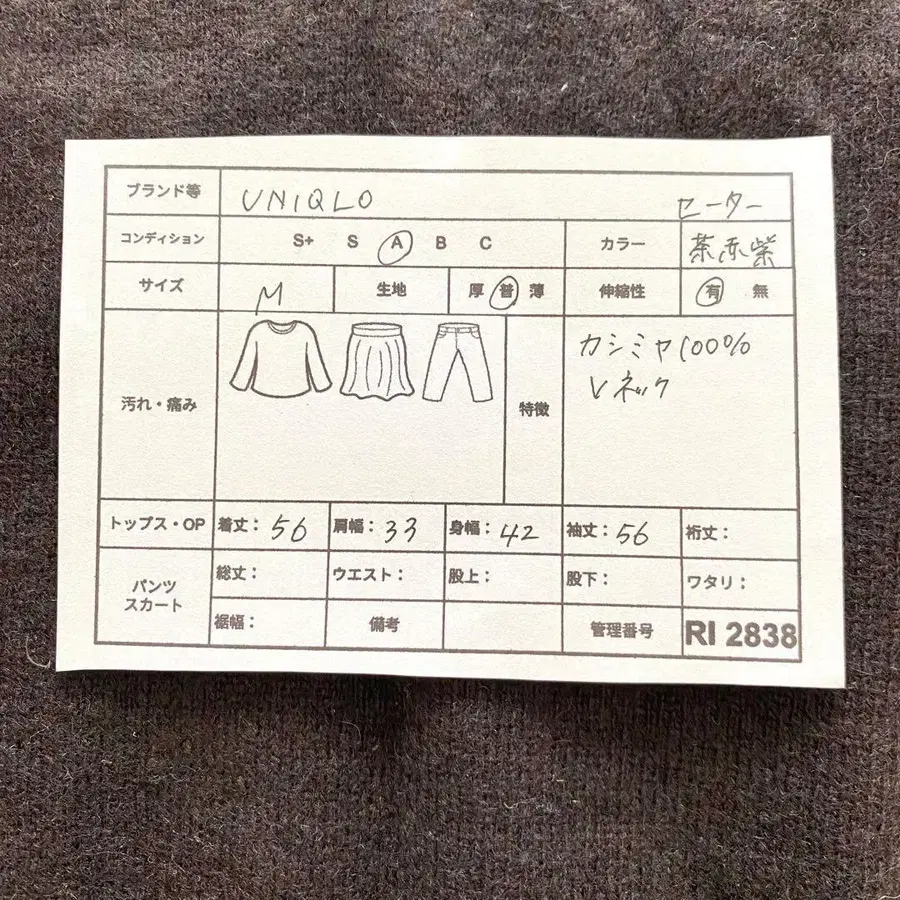 ブランド等 UNIQLO セーター
コンディション S+ S A B C カラー 茶赤紫
サイズ M 生地 厚 普 薄 伸縮性 有 無
汚れ・痛み 特徴 カシミヤ100%
Vネック
トップス・OP 着丈：56 肩幅：33 身幅：42 袖丈：56 裄丈：
パンツ スカート 総丈： ウエスト： 股上： 股下： ワタリ：
裾幅： 備考 管理番号 RI 2838